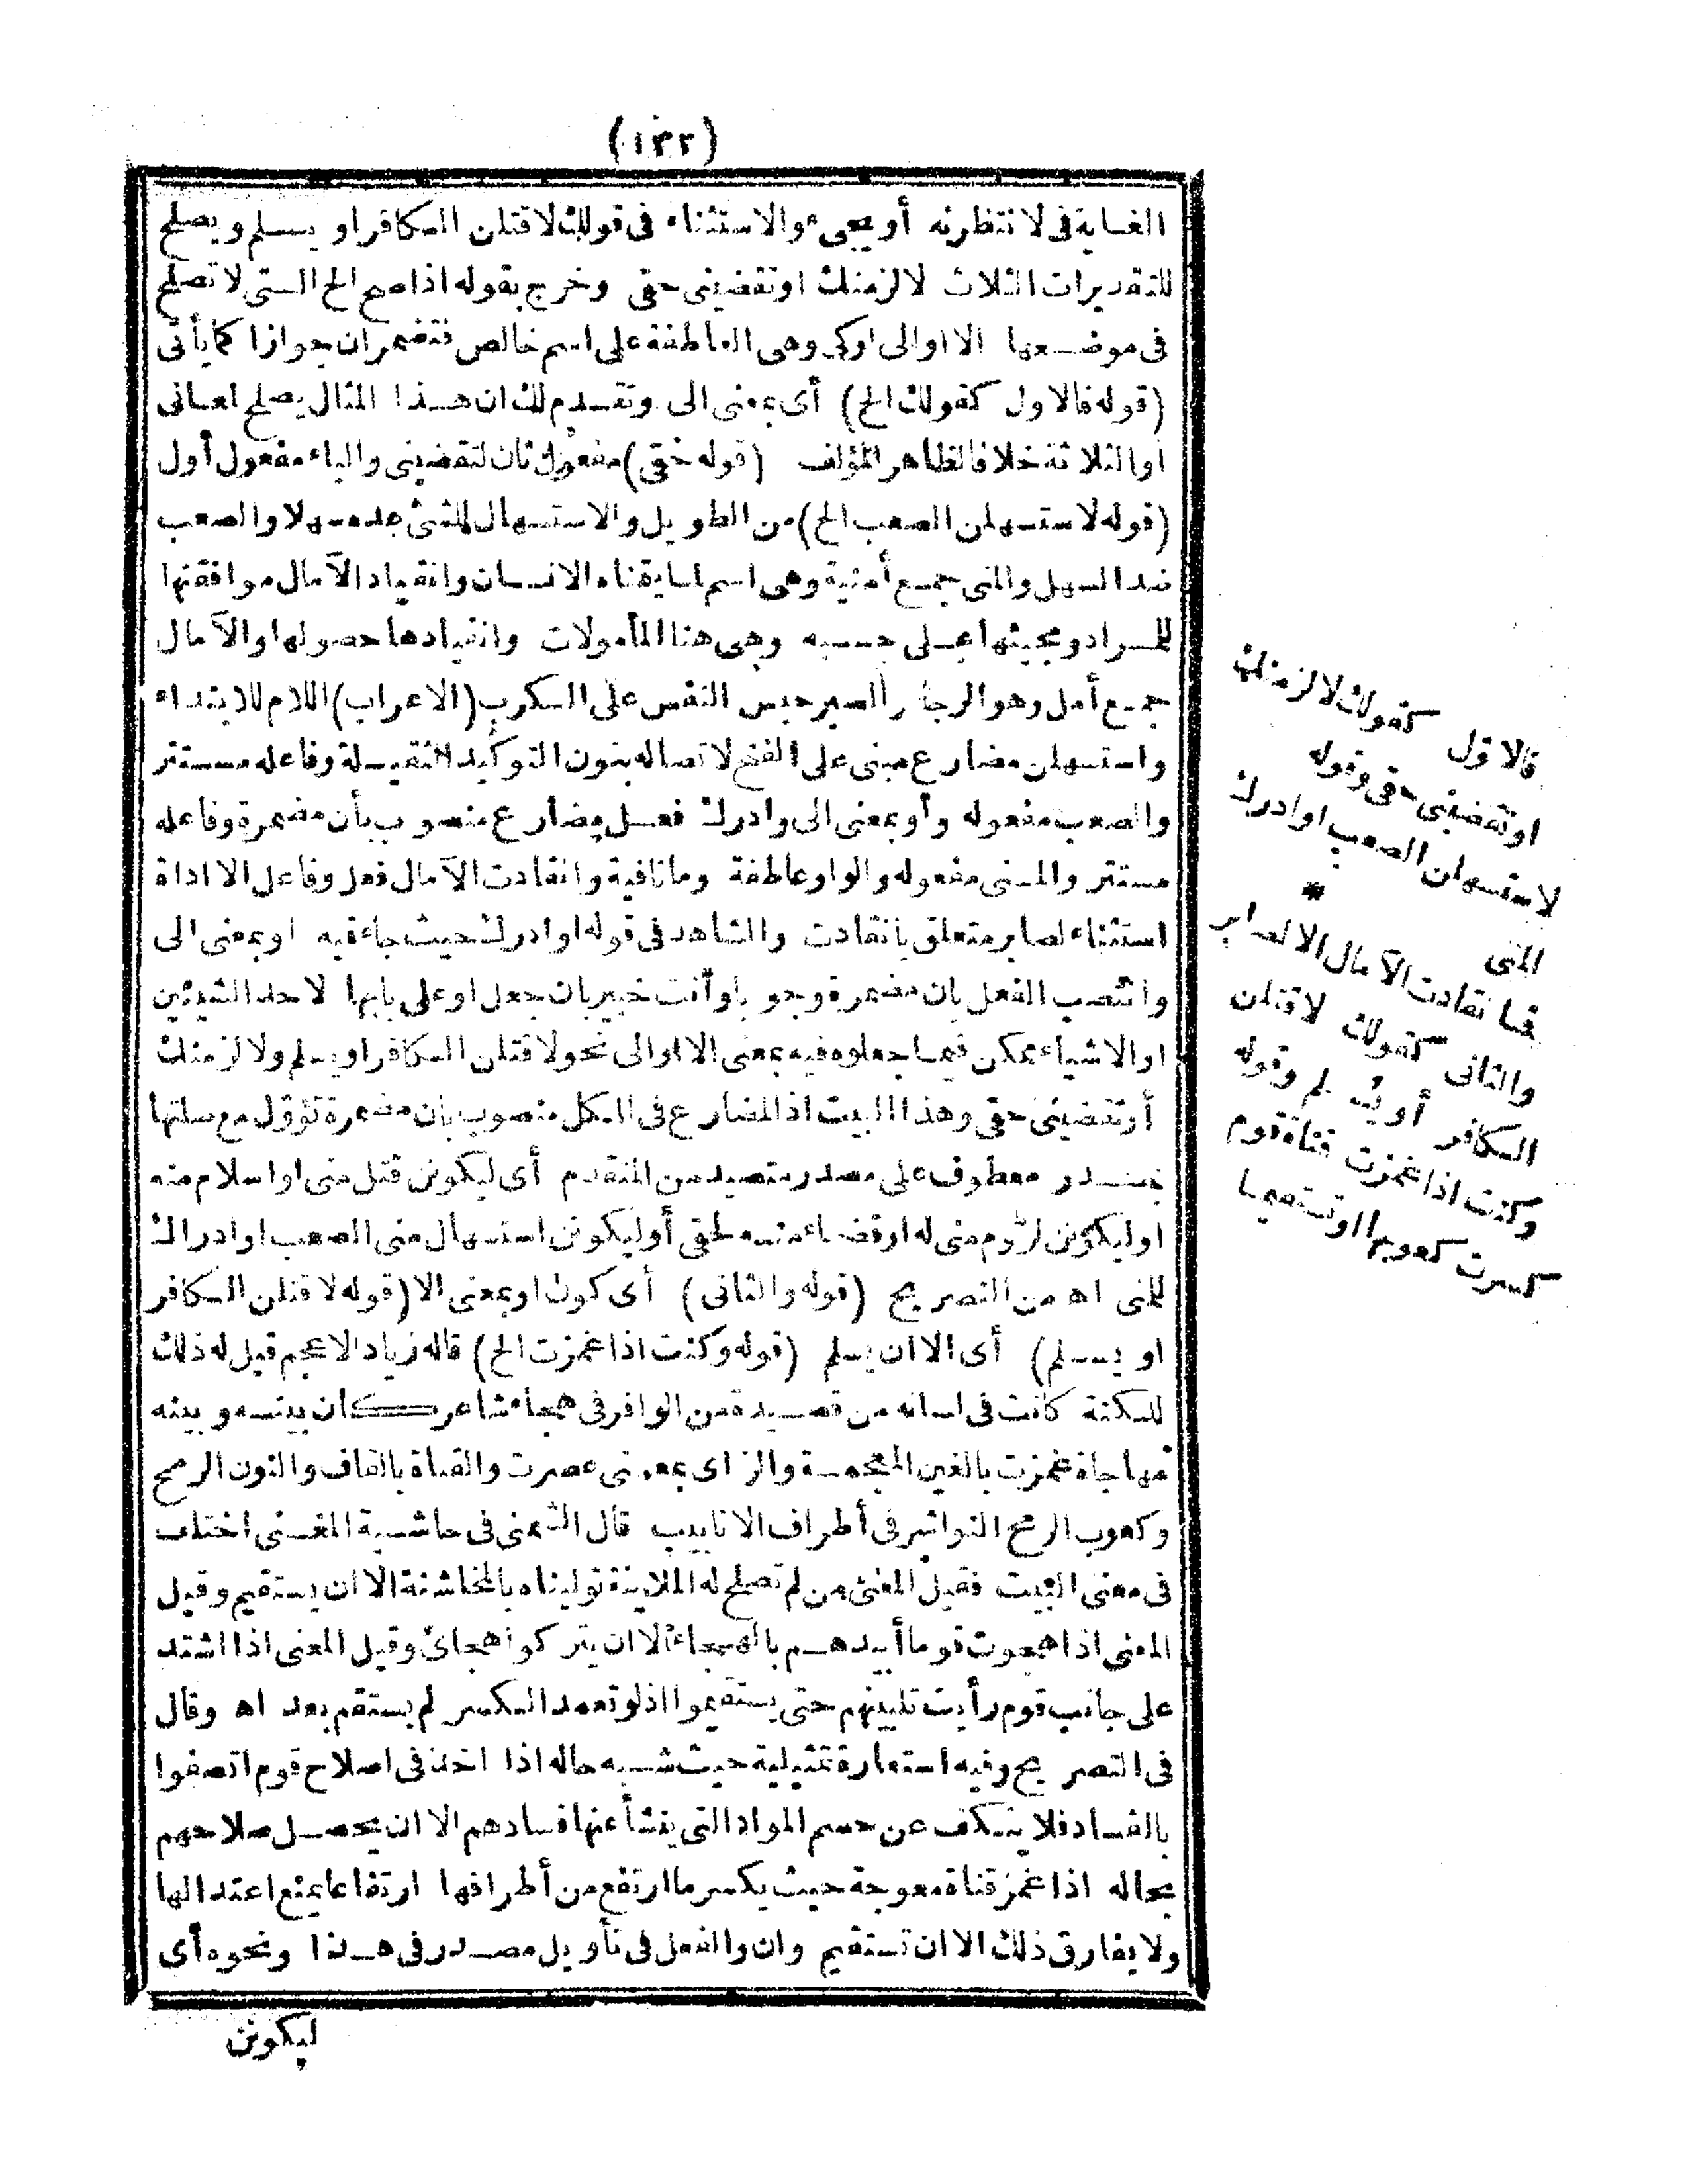 (١٣٢)
الغاية فى لانتظرنه أو يجىء والاستثناء فى قولك لاقتلن الكافر او يسلم ويصلح
للتقديرات الثلاث لالزمنك اوتقضينى حقى وخرج بقوله اذا صح الح التى لا تصلح
فى موضعها الا اوالى اوكى وهى العاطفة على اسم خالص فتضمر ان جوازا كما يأتى
(قوله فالاول كقولك الح) أى بمعنى الى وتقدم لك ان هذا المثال يصلح لمعانى
اوالثلاثة خلافا لظاهر المؤلف (قوله حقى) مفعول ثان لتقضينى والياء مفعول أول
(قوله لاستسهلن الصعب الح) من الطويل والاستسهال للشئ عده سهلا والصعب
ضد السهل والمنى جمع أمنية وهى اسم لما يتمناه الانسان وانقياد الآمال موافقتها
للمراد ومجيئها على حسبه وهى هنا المأمولات وانقيادها حصولها والآمال
جمع أمل وهو الرجا والصبر حبس النفس على الكرب (الاعراب) اللام للابتداء
واستسهلن مضارع مبنى على الفتح لاتصاله بنون التوكيد الثقيلة وفاعله مستتر
والصعب مفعوله وأو بمعنى الى وادرك فعل مضارع منصوب بأن مضمرة وفاعله
مستتر والمنى مفعوله والواو عاطفة وما نافية وانقادت الآمال فعل وفاعل الا اداة
استثناء لصابر متعلق بانقادت والشاهد فى قوله اوادرك حيث جاء فيه او بمعنى الى
وانتصب الفعل بان مضمرة وجوبا وأنت خبير بان جعل او على بابها لاحد الشيئين
اوالاشياء ممكن فيما جعلوه فيه بمعنى الا اوالى نحو لاقتلن الكافر اويسلم ولالزمنك
أوتقضينى حقى وهذا البيت اذ المضارع فى الكل منصوب بان مضمرة تؤول مع صلتها
بمصدر معطوف على مصدر متصيد من المتقدم أى ليكونن قتل منى او اسلام منه
اوليكونن لزوم منى له اوقضاء منه لحقى أوليكونن استسهال منى الصعب اوادراك
للمنى اه من التصريح (قوله والثانى) أى كون او بمعنى الا (قوله لاقتلن الكافر
او يسلم) أى الا ان يسلم (قوله وكنت اذا غمزت الح) قاله زياد الاعجم قيل له ذلك
للكنة كانت فى لسانه من قصيدة من الوافر فى هجاء شاعر كان بينه وبينه
مهاجاة غمزت بالغين المعجمة والزاى بمعنى عصرت والقناة بالقاف والنون الرمح
وكعوب الرمح النواشر فى أطراف الانابيب قال الشمنى فى حاشية المغنى اختلف
فى معنى البيت فقيل المعنى من لم تصلح له الملاينة توليناه بالمخاشنة الا ان يستقيم وقيل
المعنى اذا هجوت قوما أبيدهم بالهجاء الا ان يتركوا هجائى وقيل المعنى اذا اشتد
على جانب قوم رأيت تليينهم حتى يستقيموا اذ لو تعمد الكسر لم يستقم بعد اه وقال
فى التصريح وفيه استعارة تمثيلية حيث شبه حاله اذا اخذ فى اصلاح قوم اتصفوا
بالفساد فلا ينكف عن حسم المواد التى ينشأ عنها فسادهم الا ان يحصل صلاحهم
بحاله اذا غمز قناة معوجة حيث يكسر ما ارتفع من أطرافها ارتفاعا يمنع اعتدالها
ولا يفارق ذلك الا ان تستقيم وان والفعل فى تأويل مصدر فى هذا ونحوه أى
ليكونن
فالاول كقولك لالزمنك
اوتقضينى حقى وقوله
لاستسهلن الصعب اوادرك
المنى *
فما انقادت الآمال الا لصابر
والثانى كقولك لاقتلن
الكافر أويسلم وقوله
وكنت اذا غمزت قناة قوم
كسرت كعوبها اوتستقيما